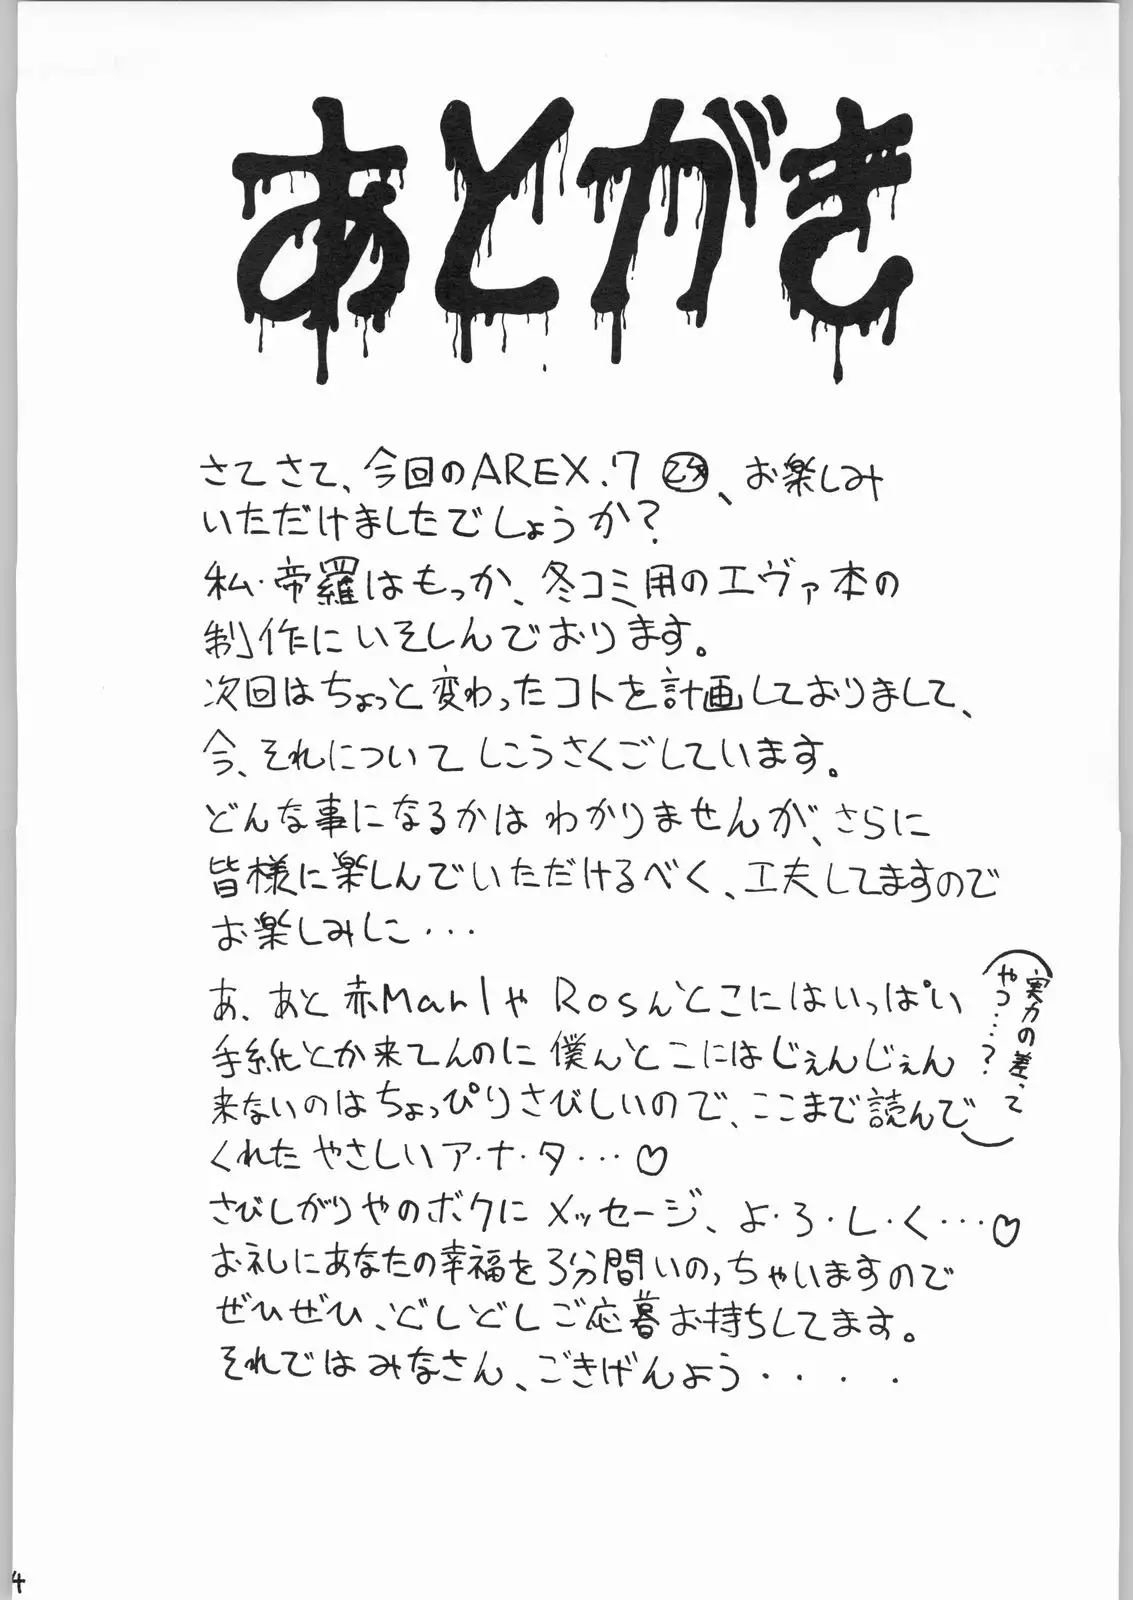 あとがき
さてさて、今回のAREX.7 、お楽しみ
いただけましたでしょうか?
私・帝羅はもっか、冬コミ用のエヴァ本の
制作にいそしんでおります。
次回はちょっと変わったコトを計画しておりまして、
今、それについてしこうさくごしています。
どんな事になるかはわかりませんが、さらに
皆様に楽しんでいただけるべく、工夫してますので
お楽しみに・・・
あ、あと赤ManlやRosんとこにはいっぱい
手紙とか来てんのに僕んとこにはじぇんじぇん
来ないのはちょっぴりさびしいので、ここまで読んで
くれたやさしいア・ナ・タ・・・♡
さびしがりやのボクにメッセージ、よ・ろ・し・く・・・♡
お礼にあなたの幸福を3分間いのっちゃいますので
ぜひぜひ、どしどしご応募お持ちしてます。
それではみなさん、ごきげんよう・・・・
実力の差、って
やつ・・・?
4